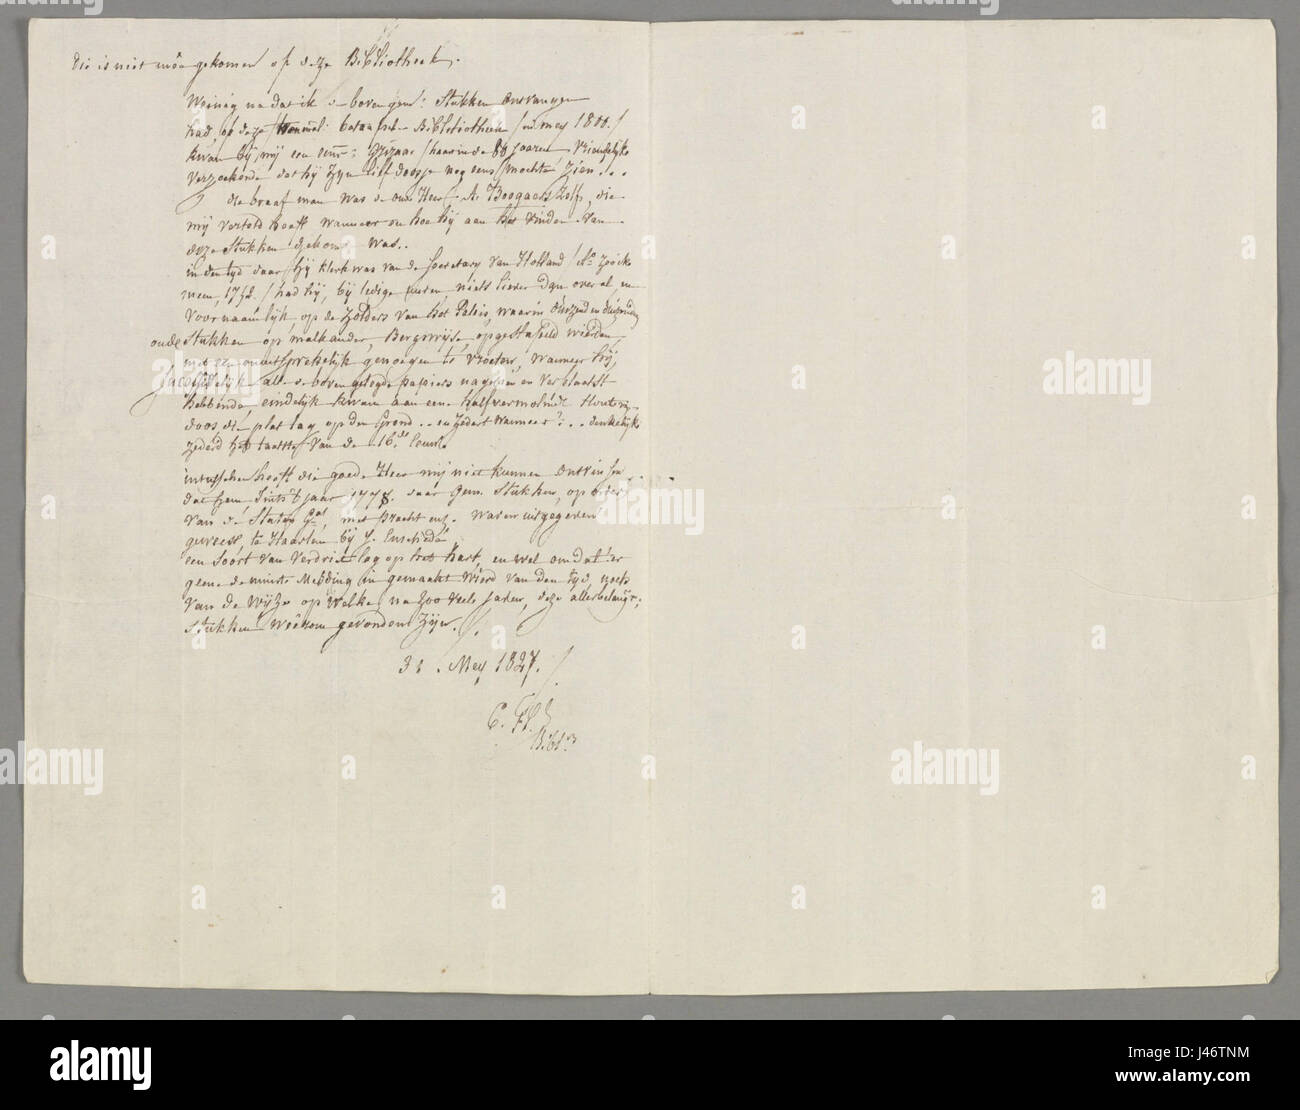 die is niet meê gekomen op deze Bibliotheek.
Weinig na dat ik de boven gem: Stukken Ontvangen
had, op deze Bibliotheek / in mey 1800. /
kwam bij mij een / haar in de 80 jaaren vriendelijk
verzoekende dat hij Zijn lief doosje nog eens mochte Zien...
die braaf man was de oude Heer A. Boogaers Zelfs, die
mij verteld heeft wanneer en hoe hij aan het Vinden Van
deze Stukken gekomen was..
in den tijd daar hij klerk was van de Secretary van Holland /
1752. / had hij, bij ledige uuren niets liever dan over al en
voornaamlijk, op de Zolders van het Paleis, waarin duizend en duizend
oude Stukken op malkander, Bergswijse opgestapeld wierden,
met een onuitsprekelijk genoegen te vroeten, wanneer hij,
alle de boven gelegde papiers nagezien en verplaatst
hebbende, eindelijk kwam aan een half vermolmde Houten
doos die plat lag op den Grond... en Zedert wanneer?... denkelijk
Zederd het laatste van de 16de Eeuw.
intusschen heeft die goede Heer mij niet kunnen Ontveinsen
dat hem Sints 't jaar 177 daar Gem. Stukken, op order
van de Staten Gnl, met pracht enz. Waren uitgegeven
geweest, te Haarlem bij J. Enschedé
een Soort van Verdriet lag op het hart, en wel om dat 'er
geene de minste Melding in gemaakt wierd van den tijd, noch
van de Wijze op Welke, na Zoo veele jaren, deze allerbelangr:
Stukken Weêrom gevonden Zijn.
31. Mey 1827.
C. Fl.
Bibl.
alamy
Image ID: J46TNM
www.alamy.com